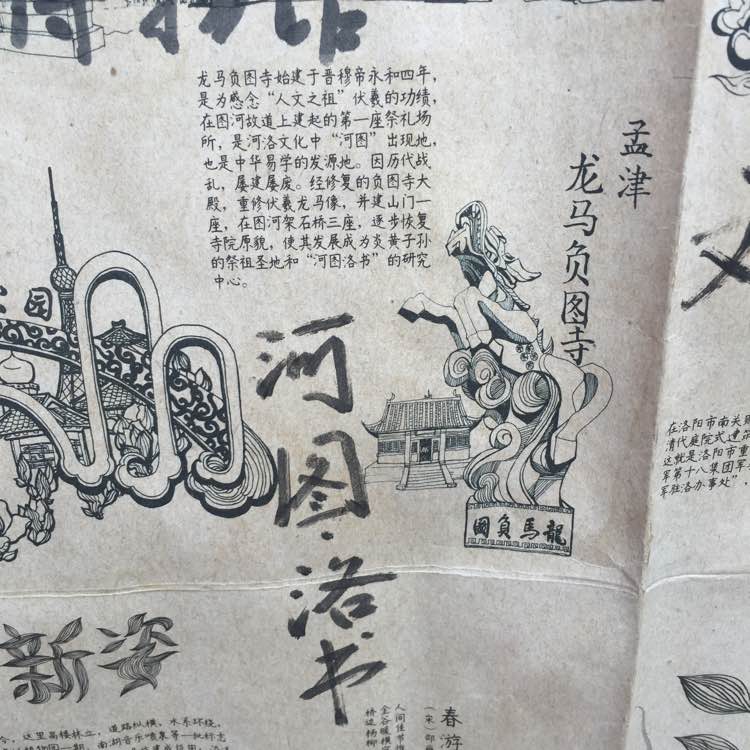 博物馆
龙马负图寺始建于晋穆帝永和四年，
是为感念“人文之祖”伏羲的功绩，
在图河故道上建起的第一座祭礼场
所，是河洛文化中“河图”出现地，
也是中华易学的发源地。因历代战
乱，屡建屡废。经修复的负图寺大
殿，重修伏羲龙马像，并建山门一
座，在图河架石桥三座，逐步恢复
寺院原貌，使其发展成为炎黄子孙
的祭祖圣地和“河图洛书”的研究
中心。
孟津
龙马负图寺
公园
河图·洛书
龍馬負圖
在洛阳市南关
清代庭院式建
这就是洛阳市重
军第十八集团军
军驻洛办事处”，
新姿
这里高楼林立，道路纵横，水系环绕，
南湖音乐喷泉等一批标志
春游
（宋）邵
人间佳节惟
金谷暖横
桥边杨柳